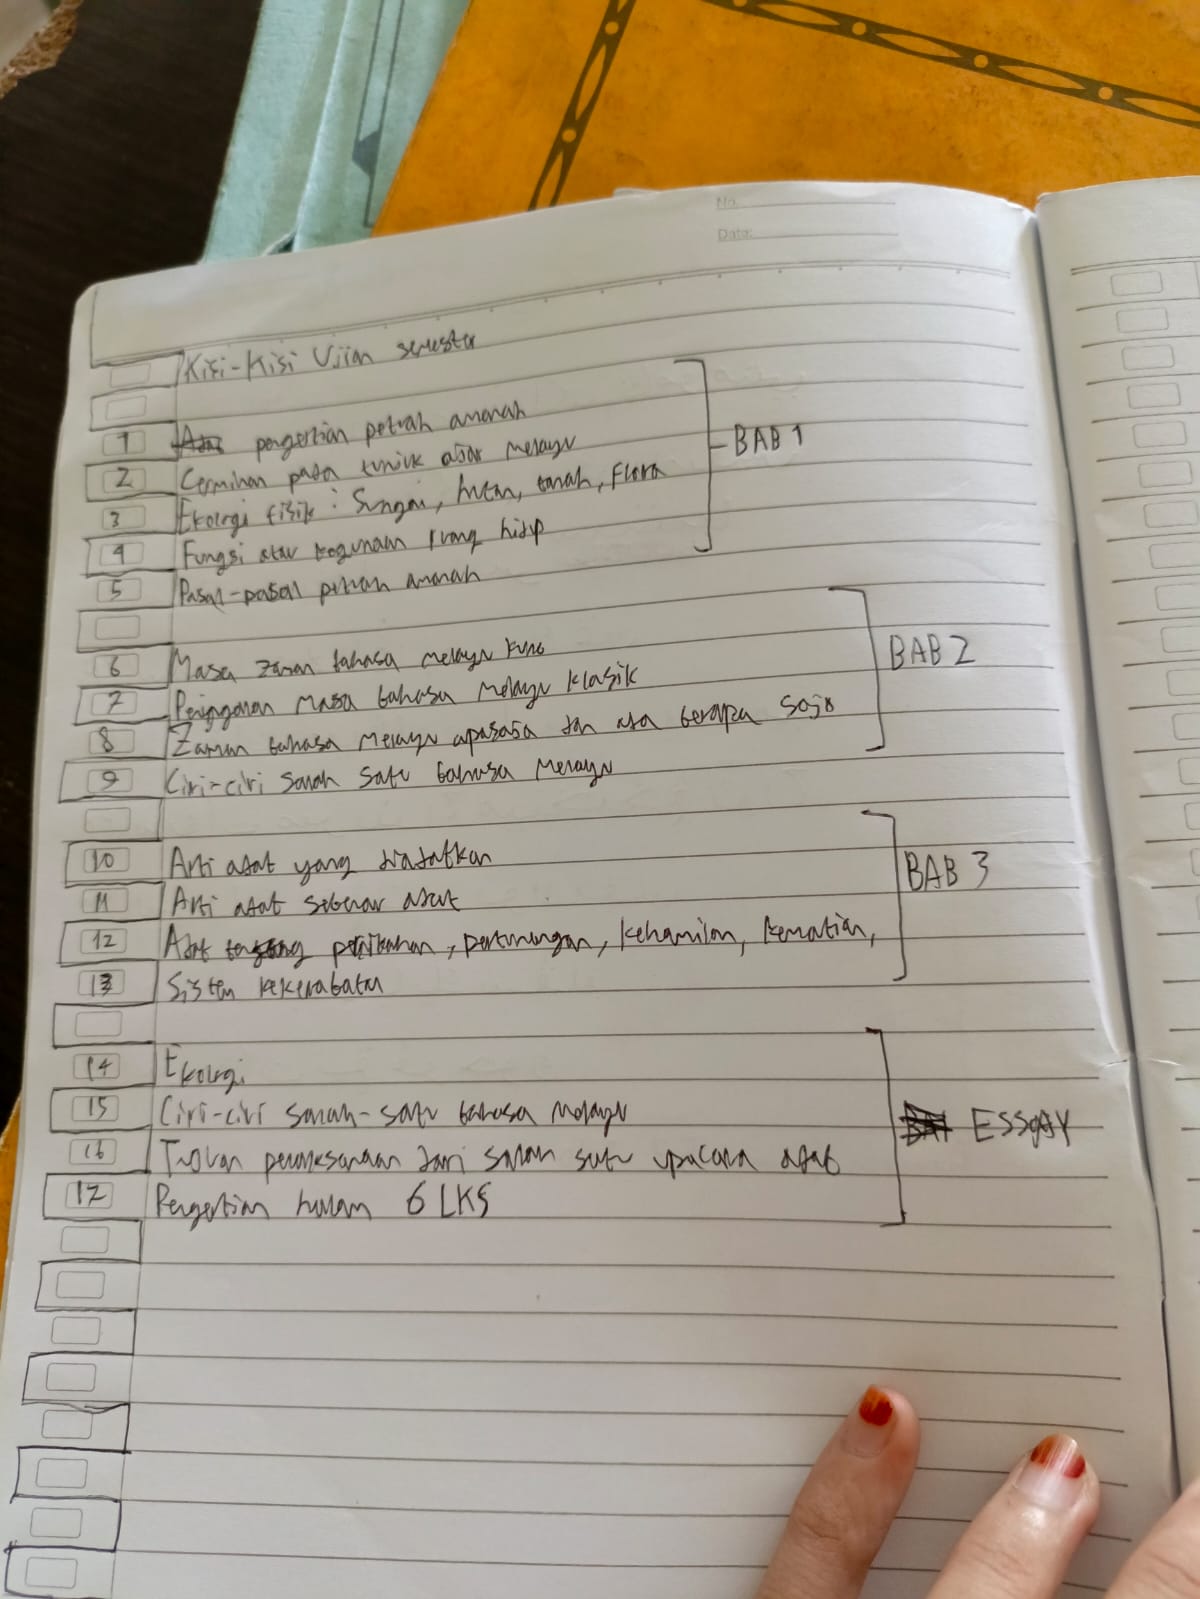 No.
Date:
Kisi-Kisi Ujian semester
1 pengertian petuah amanah
2 Cerminan pada tunjuk ajar melayu
3 Ekologi fisik : Sungai, hutan, tanah, Flora
4 Fungsi atau kegunaan ruang hidup
BAB 1
5 Pasal-pasal petuah amanah
6 Masa zaman bahasa melayu kuno
7 Peninggalan masa bahasa melayu klasik
8 Zaman bahasa melayu apasaja dan ada berapa saja
BAB 2
9 Ciri-ciri salah satu bahasa melayu
10 Arti adat yang diadatkan
11 Arti adat sebenar adat
12 Adat tentang pernikahan, pertunangan, kehamilan, kematian,
BAB 3
13 Sistem kekerabatan
14 Ekologi
15 Ciri-ciri salah-satu bahasa melayu
16 Tujuan pelaksanaan dari salah satu upacara adat
ESSAY
17 Pengertian halam 6 LKS